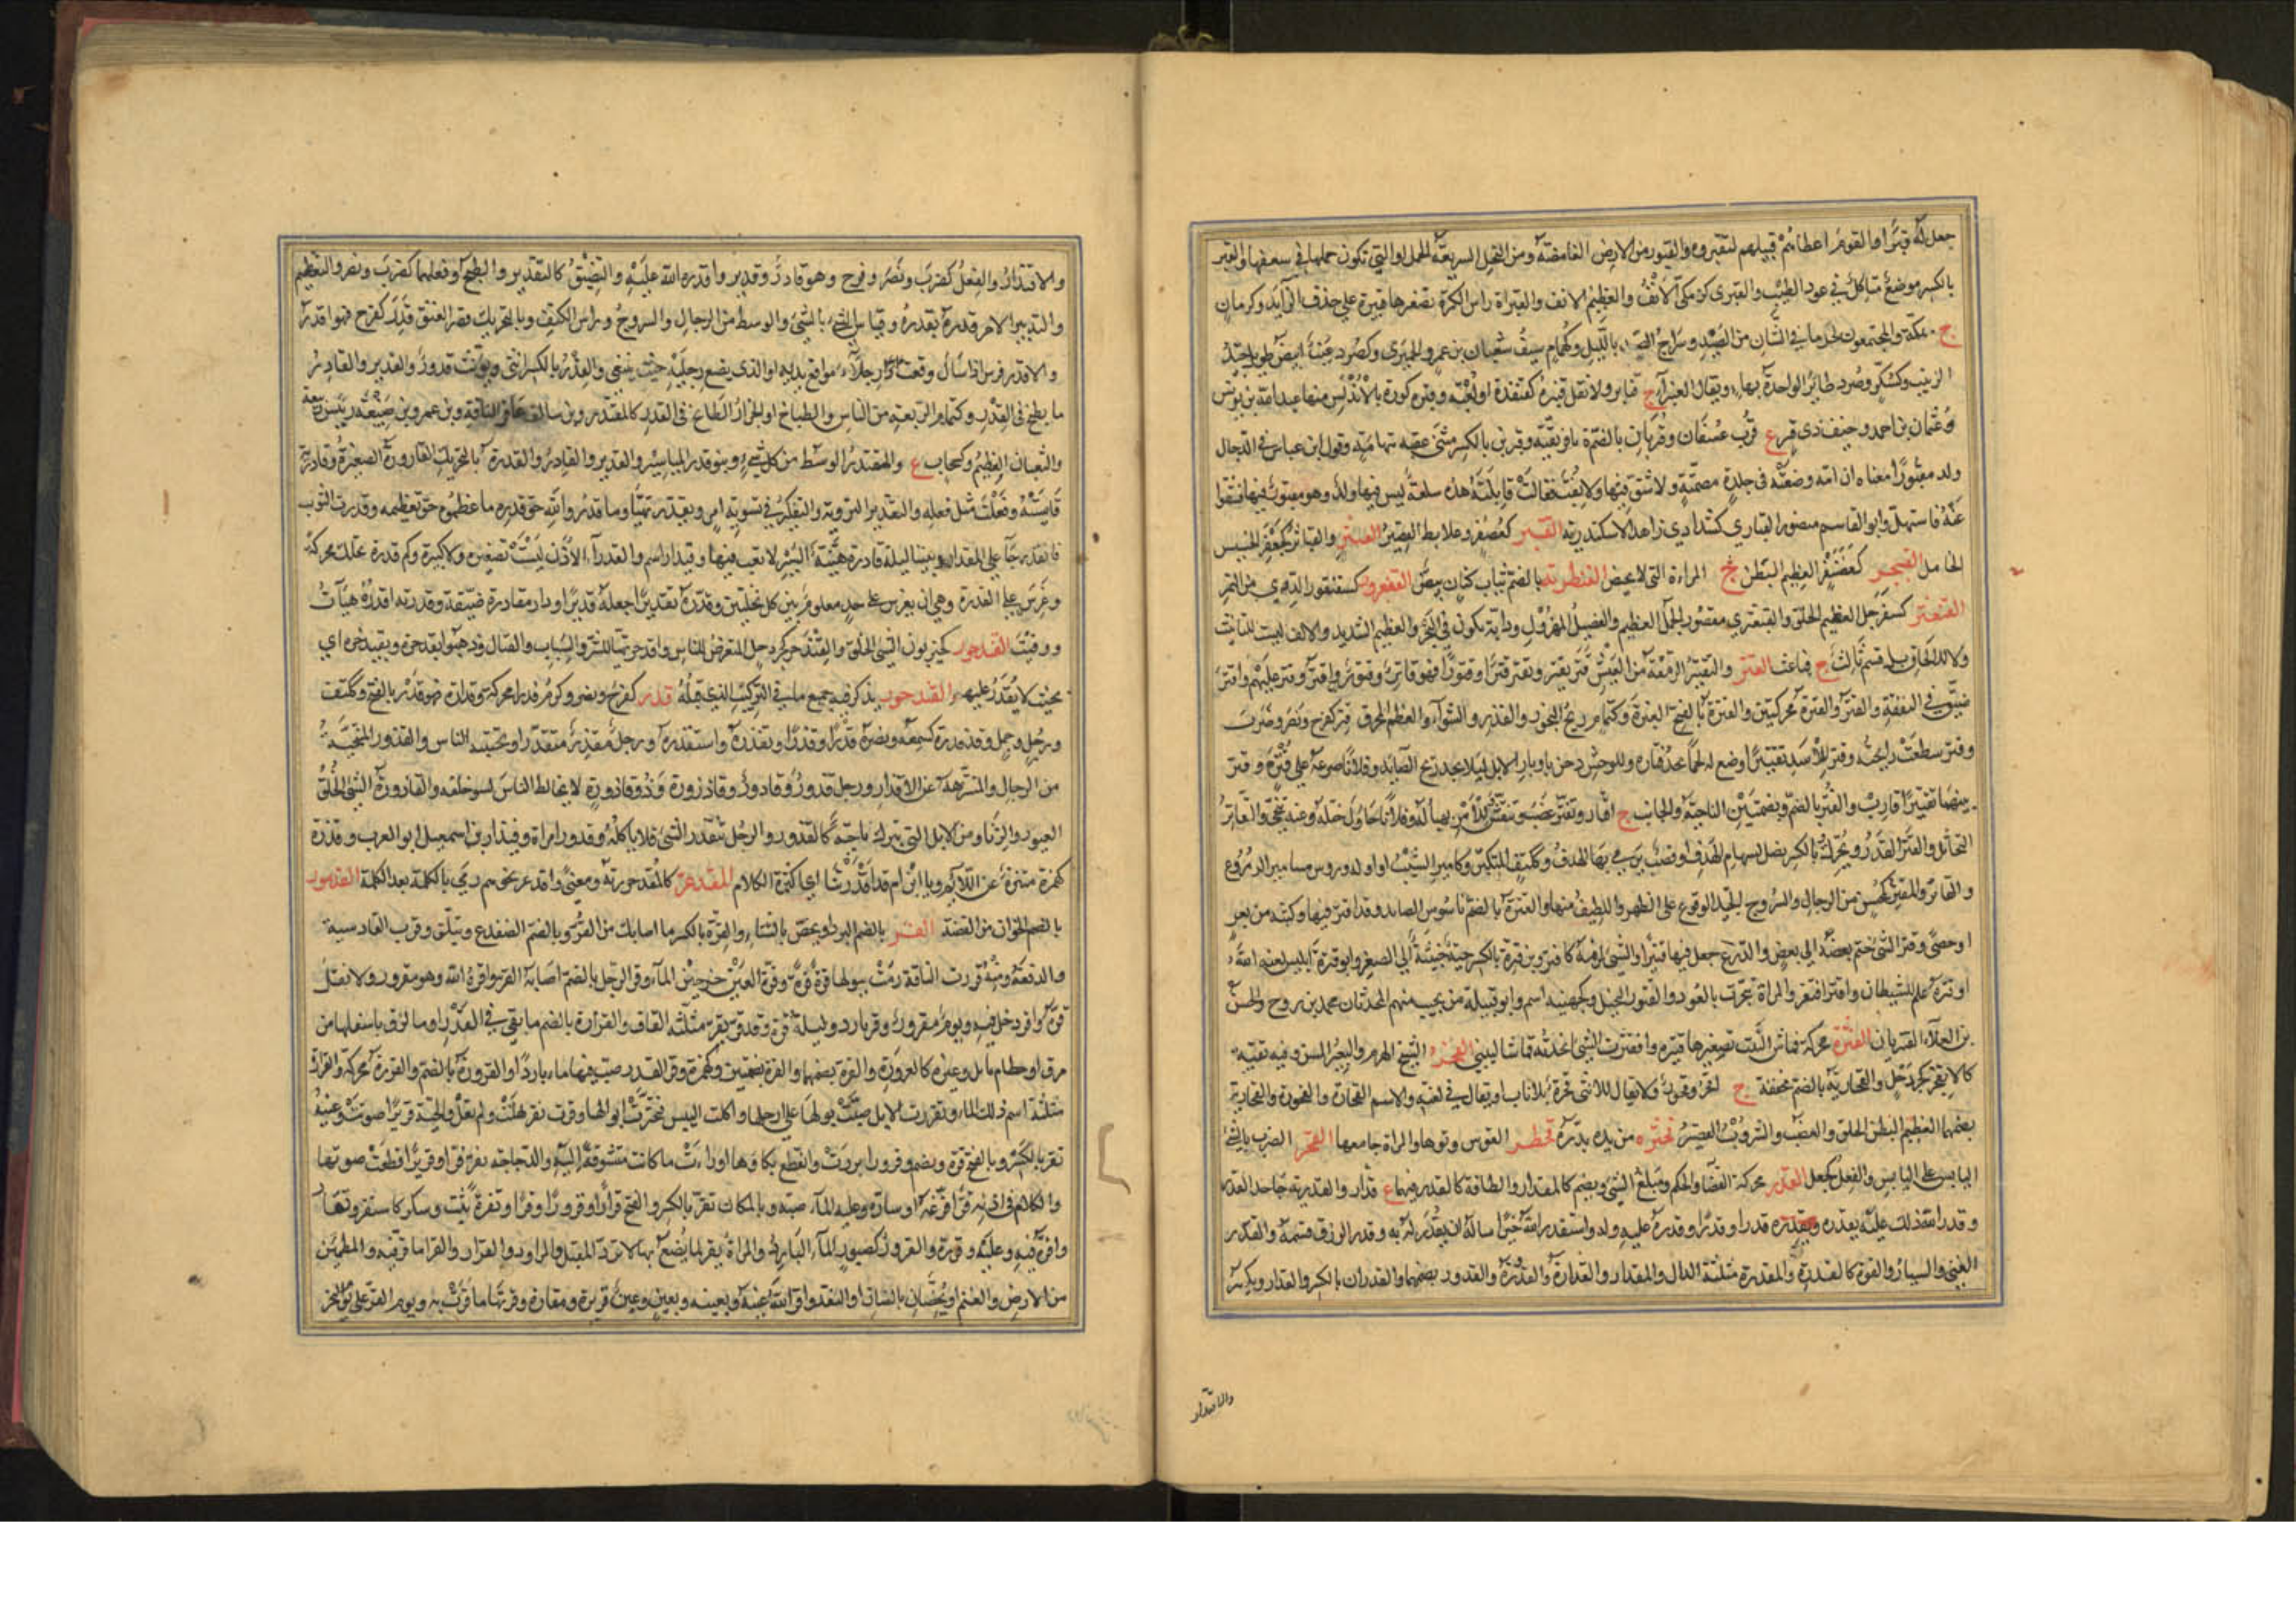 جعل له قبرا والقوم اعطاهم قبيلهم ليقبروه والقبور من الارض الغامضة ومن النخل السريعة الحمل او التي تكون حملها في سعفها والقبر
بالكسر موضع متاكل في عود الطيب والقبرى كزمكى الانف والعظيم الانف والقبراة راس الكمرة تصغيرها قبيرة على حذف الزايد وكرمان
ع بمكة والمجتمعون لجر ما في الشباك من الصيد وسراج الصياد بالليل وكهمام سيف شعبان بن عمرو الحميري وكصرد عنب ابيض طويل جيد
الزبيب وكسكر وصرد طائر الواحدة بهاء ويقال القنبراء ج قنابر ولا تقل قنبرة كقنفذة او لغية وقبرة كورة بالاندلس منها عبد الله بن يونس
وعثمان بن احمد وخيف ذي قبر ع قرب عسفان وقبريان بالضم ة بافريقية وقبرين بالكسر مثنى عقبة بتهامة وقول ابن عباس في الدجال
ولد مقبورا معناه ان امه وضعته في جلدة مصمتة لا شق فيها ولا ثقب فقالت قابلته هذه سلعة ليس فيها ولد وهو مقبور فيها فشقوا
عنه فاستهل وابو القاسم منصور القباري كشدادي زاهد الاسكندرية القبتر كعصفر وعلابط القصير القبثر والقباثر كجعفر الخسيس
الخامل القبجر كغضنفر العظيم البطن المراة التي لا تحيض القبطرية بالضم ثياب كتان بيض القبعرور كسقنقور الردي من التمر
القبعثر كسفرجل العظيم الخلق والقبعثرى مقصورا الجمل العظيم والفصيل المهزول ودابة تكون في البحر والعظيم الشديد والالف ليست للتانيث
ولا للالحاق بل قسم ثالث ج قباعث القتر والتقتير الرمقة من العيش قتر يقتر ويقتر قترا وقتورا فهو قاتر وقتور واقتر وقتر عليهم واقتر
ضيق في النفقة والقتر والقترة محركتين والقترة بالفتح الغبرة وكهمام ريح البخور والقدر والشواء والعظم المحرق قتر كفرح ونصر وضرب
وقتر سطعت رايحته وقتر للاسد تقتيرا وضع له لحما يجد قتاره وللوحش دخن باوبار الابل ليلا يجد ريح الصائد وفلانا صرعه على قترة وقتر
بينهما تقتيرا قارب والقتر بالضم وبضمتين الناحية والجانب ج اقتار وتقتر غضب وتنفش للامر تهيا له وفلانا حاول ختله وعنه تنحى والقاتر
التخاتل والقتر القدر ويحرك وبالكسر نصل لسهام الهدف او قصب يرمى بها الهدف وككتف المتكبر وكامير الشيب او اوله وروس مسامير الدروع
والقاتر والمقتر كمحسن من الرجال والسروج الجيد الوقوع على الظهر واللطيف منها والقترة بالضم ناموس الصائد وقد اقتر فيها وكثبة من بعر
او حصى وقتر الشئ ضم بعضه الى بعض والدرع جعل فيها قتيرا والشئ لزمه كاقتر وابن قترة بالكسر حية خبيثة الى الصغر وابو قترة ابليس لعنه الله
او قترة علم للشيطان واقتر افتقر والمراة تبخرت بالعود والقتور البخيل وكجهينة اسم وابو قبيلة من تجيب منهم المحدثان محمد بن روح والحسن
بن العلاء القتيريان القثرة محركة قماش البيت تصغيرها قثيرة واقتثرت الشئ اخذته قماشا لبيتي القحر الشيخ الهرم والبعير المسن وفيه بقية
كالانقحر كجردحل والقحارية بالضم مخففة ج اقحر وقحور ولا يقال للانثى قحرة بل ناب او يقال في لغية والاسم القحارة والقحورة والقحارية
بضمهما العظيم البطن الخلق والغضب والشروب القصير قحثره من يده بدده قحطر القوس وترها والمراة جامعها القخر الضرب بالشئ
اليابس على اليابس والفعل كجعل القدر محركة القضاء والحكم ومبلغ الشئ ويضم كالمقدار والطاقة كالقدر فيهما ج اقدار والقدرية جاحدوا القدر
وقدر الله ذلك عليه يقدره ويقدره قدرا وقدرا وقدره عليه وله واستقدر الله خيرا ساله ان يقدر له به وقدر الرزق قسمه والقدر
الغنى واليسار والقوة كالقدرة والمقدرة مثلثة الدال والمقدار والقدارة والقدورة والقدور بضمهما والقدران بالكسر والقدار ويكسر
والاقتدار
والاقتدار والفعل كضرب ونصر وفرح وهو قادر وقدير واقدره الله عليه والتضييق كالتقدير والطبخ وفعلهما كضرب ونصر والتعظيم
والتدبير الامر قدره يقدره وقياس الشئ بالشئ والوسط من الرجال والسروج وراس الكتف وبالتحريك قصر العنق قدر كفرح فهو اقدر
والاقدر فرس اذا سار وقعت رجلاه مواقع يديه او الذي يضع رجليه حيث ينبغي والقدر بالكسر انثى ويؤنث قدور والقدير والقادر
ما يطبخ في القدر وكهمام الربعة من الناس والطباخ او الجزار الطابخ في القدر كالمقتدر وبن سالف عاقر الناقة وبن عمرو بن ضبيعة رئيس ربيعة
والثعبان العظيم وكسحاب ع والمقتدر الوسط من كل شئ وبنو قدراء المياسير والقدير والقادر والقدرة بالتحريك القارورة الصغيرة وقادرته
قايسته وفعلت مثل فعله والتقدير التروية والتفكير في تسوية امر وتقدر تهيا وما قدروا الله حق قدره ما عظموه حق تعظيمه وقدرت الثوب
فانقدر جاء على المقدار وبيننا ليلة قادرة هينة السير لا تعب فيها وقيدار اسم والقدراء الاذن ليست بصغيرة ولا كبيرة وكم قدرة نخلك محركة
وغرس على القدرة وهي ان يغرس على حد معلوم بين كل نخلتين وقدره تقديرا جعله قديرا ودار مقادرة ضيقة وقدرته اقدره هيات
ووقت القيدحور كحيزبون السيئ الخلق والقندحر كجردحل المتعرض للناس واقدحر تهيا للشر والسباب والقتال وذهبوا بقدحرة وبقيدخرة اي
بحيث لا يقدر عليهم القيذحور يذكر فيه جميع ما في التركيب الذي قبله قذر كفرح ونصر وكرم قذرا محركة وقذارة فهو قذر بالفتح وككتف
ورجل وجمل وقد قذره كسمعه ونصره قذرا وقذرا وتقذره واستقذره ورجل مقذر متقذر او يجتنبه الناس والقذور المتنحية
من الرجال والمتنزهة عن الاقذار ورجل قذور وقاذور وقاذورة وذو قاذورة لا يخالط الناس لسوء خلقه والقاذورة السيئ الخلق
الغيور والزنا ومن الابل التي تبرك ناحية كالقذور والرجل يتقذر الشئ فلا ياكله وقذور امراة وقيذار بن اسمعيل ابو العرب وقذرة
كهمزة متنزه عن اللائم ويا ابن ام قد اقذرتنا اي اكثرت الكلام المقذعر كالمقذحر زنة ومعنى واقذعر نحوهم رمى بالكلمة بعد الكلمة القذمور
بالضم الخوان من الفضة القر بالضم البرد او يخص بالشتاء والقرة بالكسر ما اصابك من القر وبالضم الضفدع ويثلث وقرب القادسية
والدفعة ومنه قررت الناقة رمت ببولها قرة قرة وقرة العين جرجير الماء وقر الرجل بالضم اصابه القر واقره الله وهو مقرور ولا تقل
قره واقر دخل فيه ويوم مقرور وقر بارد وليلة قرة وقد قر يقر مثلثة القاف والقرارة بالضم ما بقي في القدر او ما لزق باسفلها من
مرق او حطام تابل وغيره كالقرورة والقرة بضمهما والقرة بضمتين وكهمزة وقر القدر صب فيها ماء باردا والقرورة بالضم والقررة محركة والقرارة
مثلثة اسم ذلك الماء وتقررت الابل صبت بولها على ارجلها واكلت اليبيس فتخثرت ابوالها وقرت تقر نهلت ولم تعل والحية قريرا صوتت وعينه
تقر بالكسر وبالفتح قرة وتضم وقرورا بردت وانقطع بكاؤها او رات ما كانت متشوفة اليه والدجاجة تقر قرا وقريرا قطعت صوتها
والكلام في اذنه قرا فرغه او ساره وعليه الماء صبه وبالمكان يقر بالكسر والفتح قرارا وقرورا وقرا وتقرة ثبت وسكن كاستقر وتقار
واقره فيه وعليه وقرره والقرور كصبور الماء البارد والمراة تقر لما يصنع بها لا ترد المقبل والمراود والقرار والقرارة ما قر فيه والمطمئن
من الارض والغنم او يخصان بالضان او النقد واقر الله عينه وبعينه وعين قريرة وقارة وقرتها ما قرت به ويوم القر يلي يوم النحر